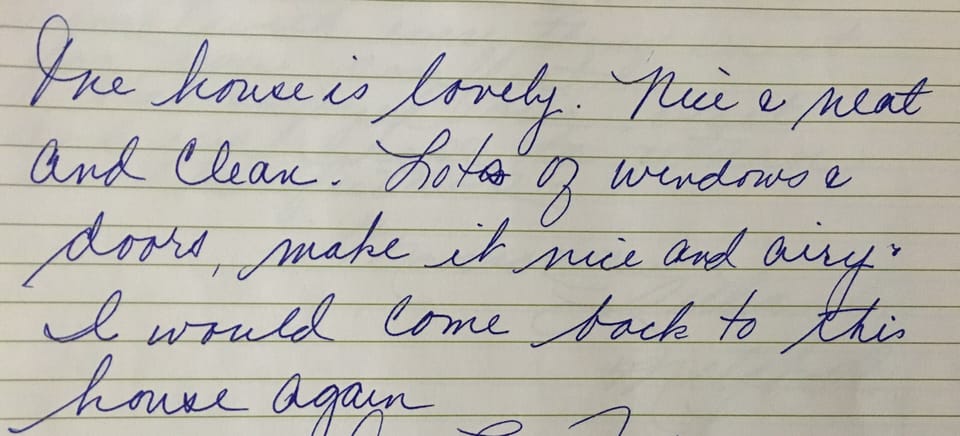 The house is lovely. Nice & neat
and clean. Lots of windows &
doors, make it nice and airy.
I would come back to this
house again